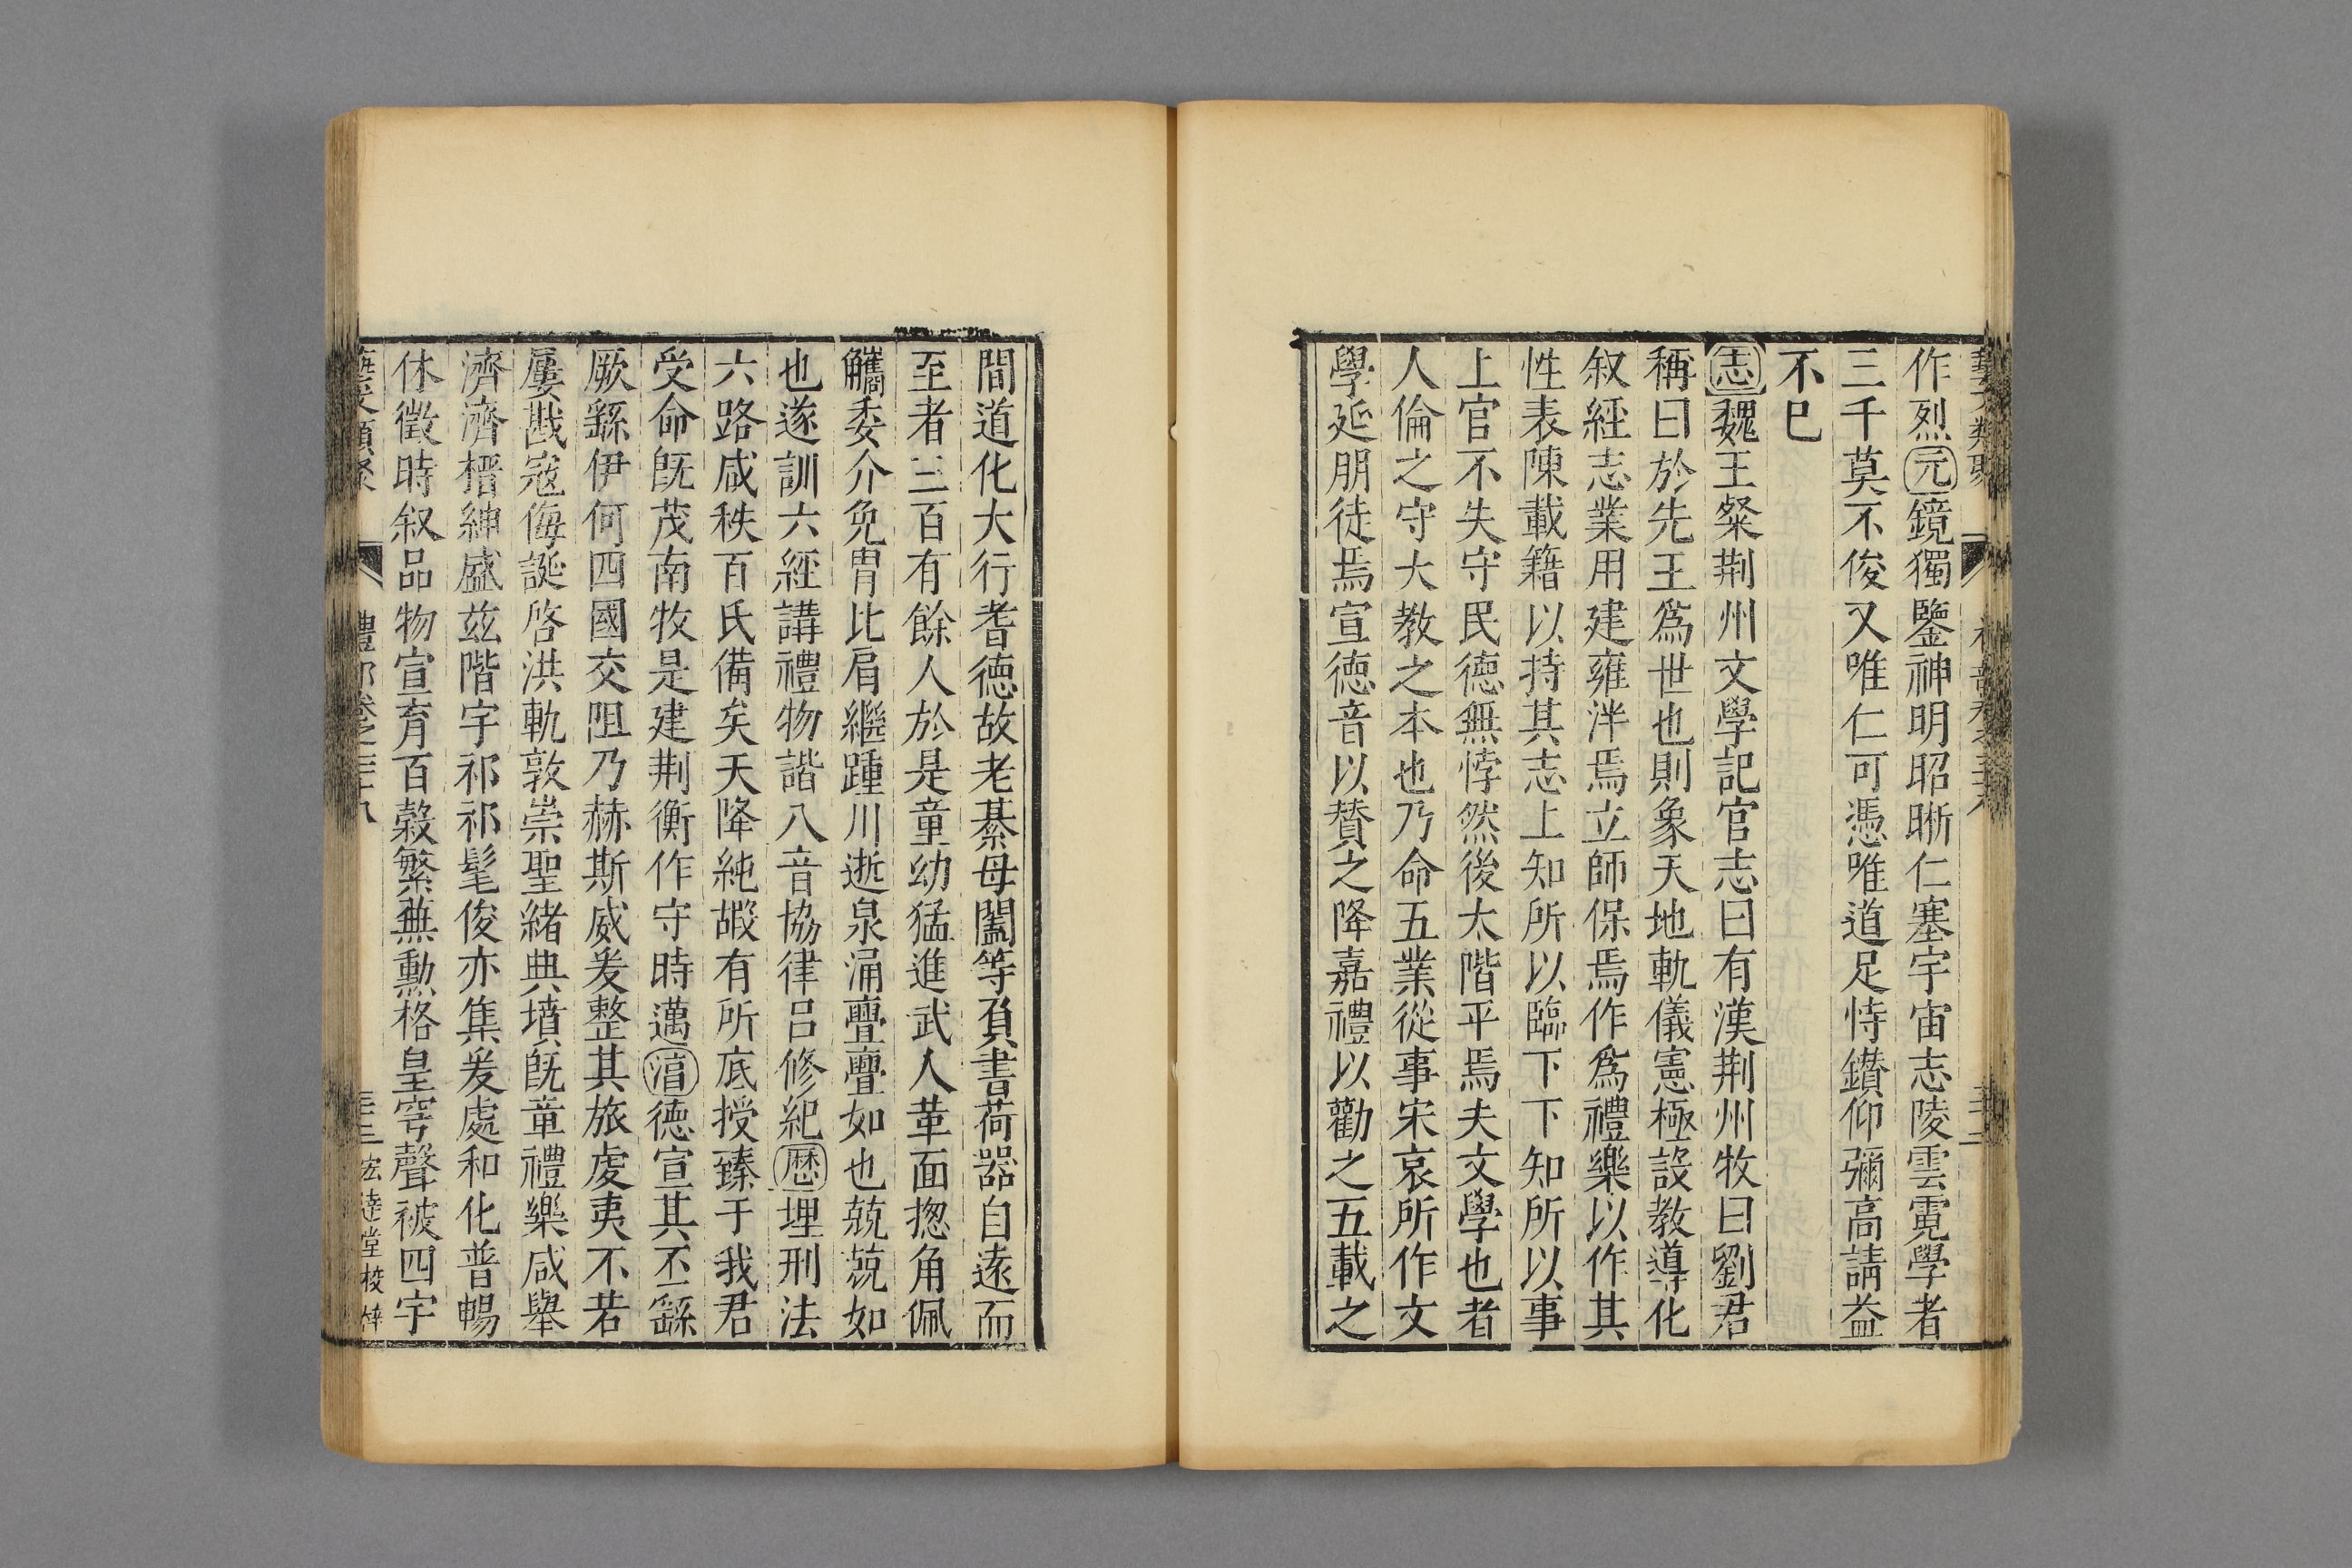 作烈元鏡獨鑒神明昭晰仁塞宇宙志陵雲霓學者
三千莫不俊乂唯仁可憑唯道足恃鑚仰彌高請益
不已
志魏王粲荆州文學記官志曰有漢荆州牧曰劉君
稱曰於先王爲世也則象天地軌儀憲極設教導化
叙經志業用建雍泮焉立師保焉作爲禮樂以作其
性表陳載籍以持其志上知所以臨下下知所以事
上官不失守民德無悖然後太階平焉夫文學也者
人倫之守大教之本也乃命五業從事宋衷所作文
學延朋徒焉宣德音以賛之降嘉禮以勸之五載之
間道化大行耆德故老綦母闓等負書荷器自遠而
至者三百有餘人於是童幼猛進武人革面揔角佩
觿委介免胄比肩繼踵川逝泉涌亹亹如也兢兢如
也遂訓六經講禮物諧八音協律吕修紀歷理刑法
六路咸秩百氏備矣天降純嘏有所底授臻于我君
受命旣茂南牧是建荆衡作守時邁淯德宣其丕繇
厥繇伊何四國交阻乃赫斯威爰整其旅虔夷不若
屢戡寇侮誕啓洪軌敦崇聖緒典墳旣章禮樂咸舉
濟濟搢紳盛兹階宇祁祁髦俊亦集爰處和化普暢
休徵時叙品物宣育百榖繁蕪勲格皇穹聲被四宇
藝文類聚 禮部卷之三十八 三十二 宏達堂校梓